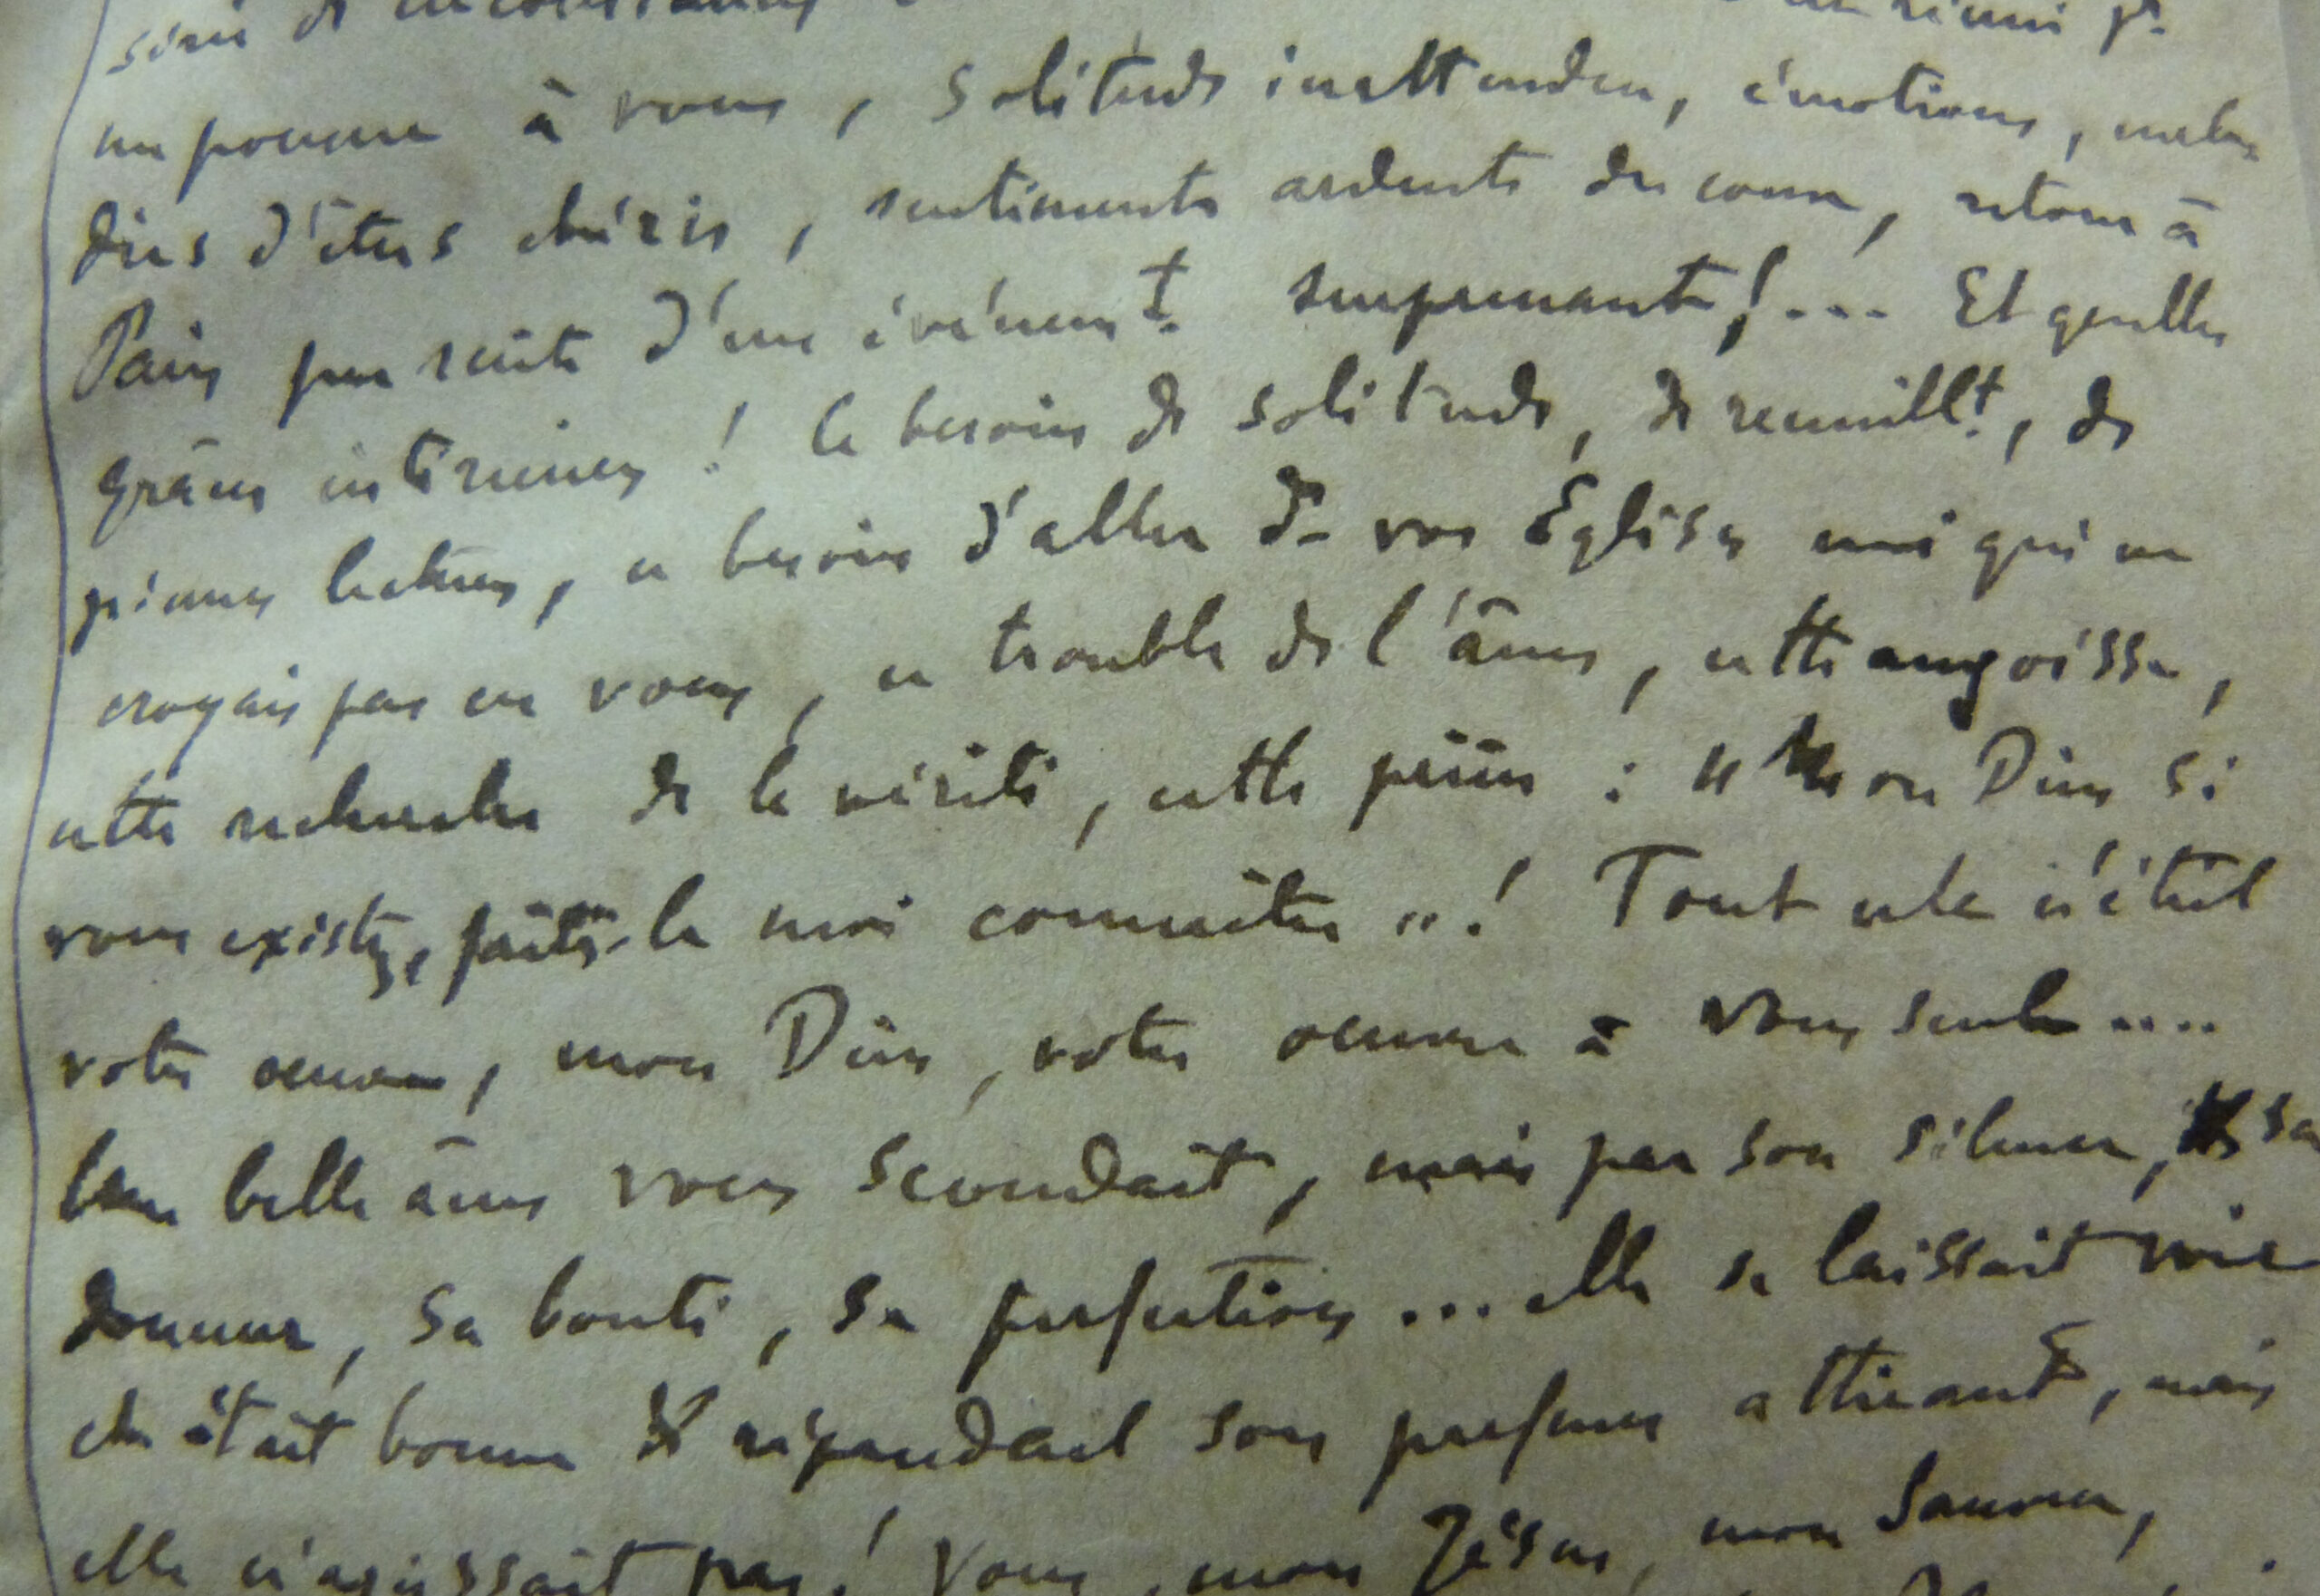 série de circonstances
me pousser à vous, solitude inattendue, émotions, mala
dies d'êtres chéris, sentiments ardents du coeur, retour à
Paris par suite d'un événemt. surprenant!... Et quelles
grâces intérieures! le besoin de solitude, de recueillt., de
pieuses lectures, ce besoin d'aller ds vos Eglises moi qui ne
croyais pas en vous, ce trouble de l'âme, cette angoisse,
cette recherche de la vérité, cette prière: "Mon Dieu si
vous existez, faites-le moi connaître"! Tout cela c'était
votre oeuvre, mon Dieu, votre oeuvre à vous seul....
Une belle âme vous secondait, mais par son silence, sa
douceur, sa bonté, sa perfection... elle se laissait voir
elle était bonne & répandait son parfum attirant, mais
elle n'agissait pas! Vous, mon Jésus, mon Sauveur,